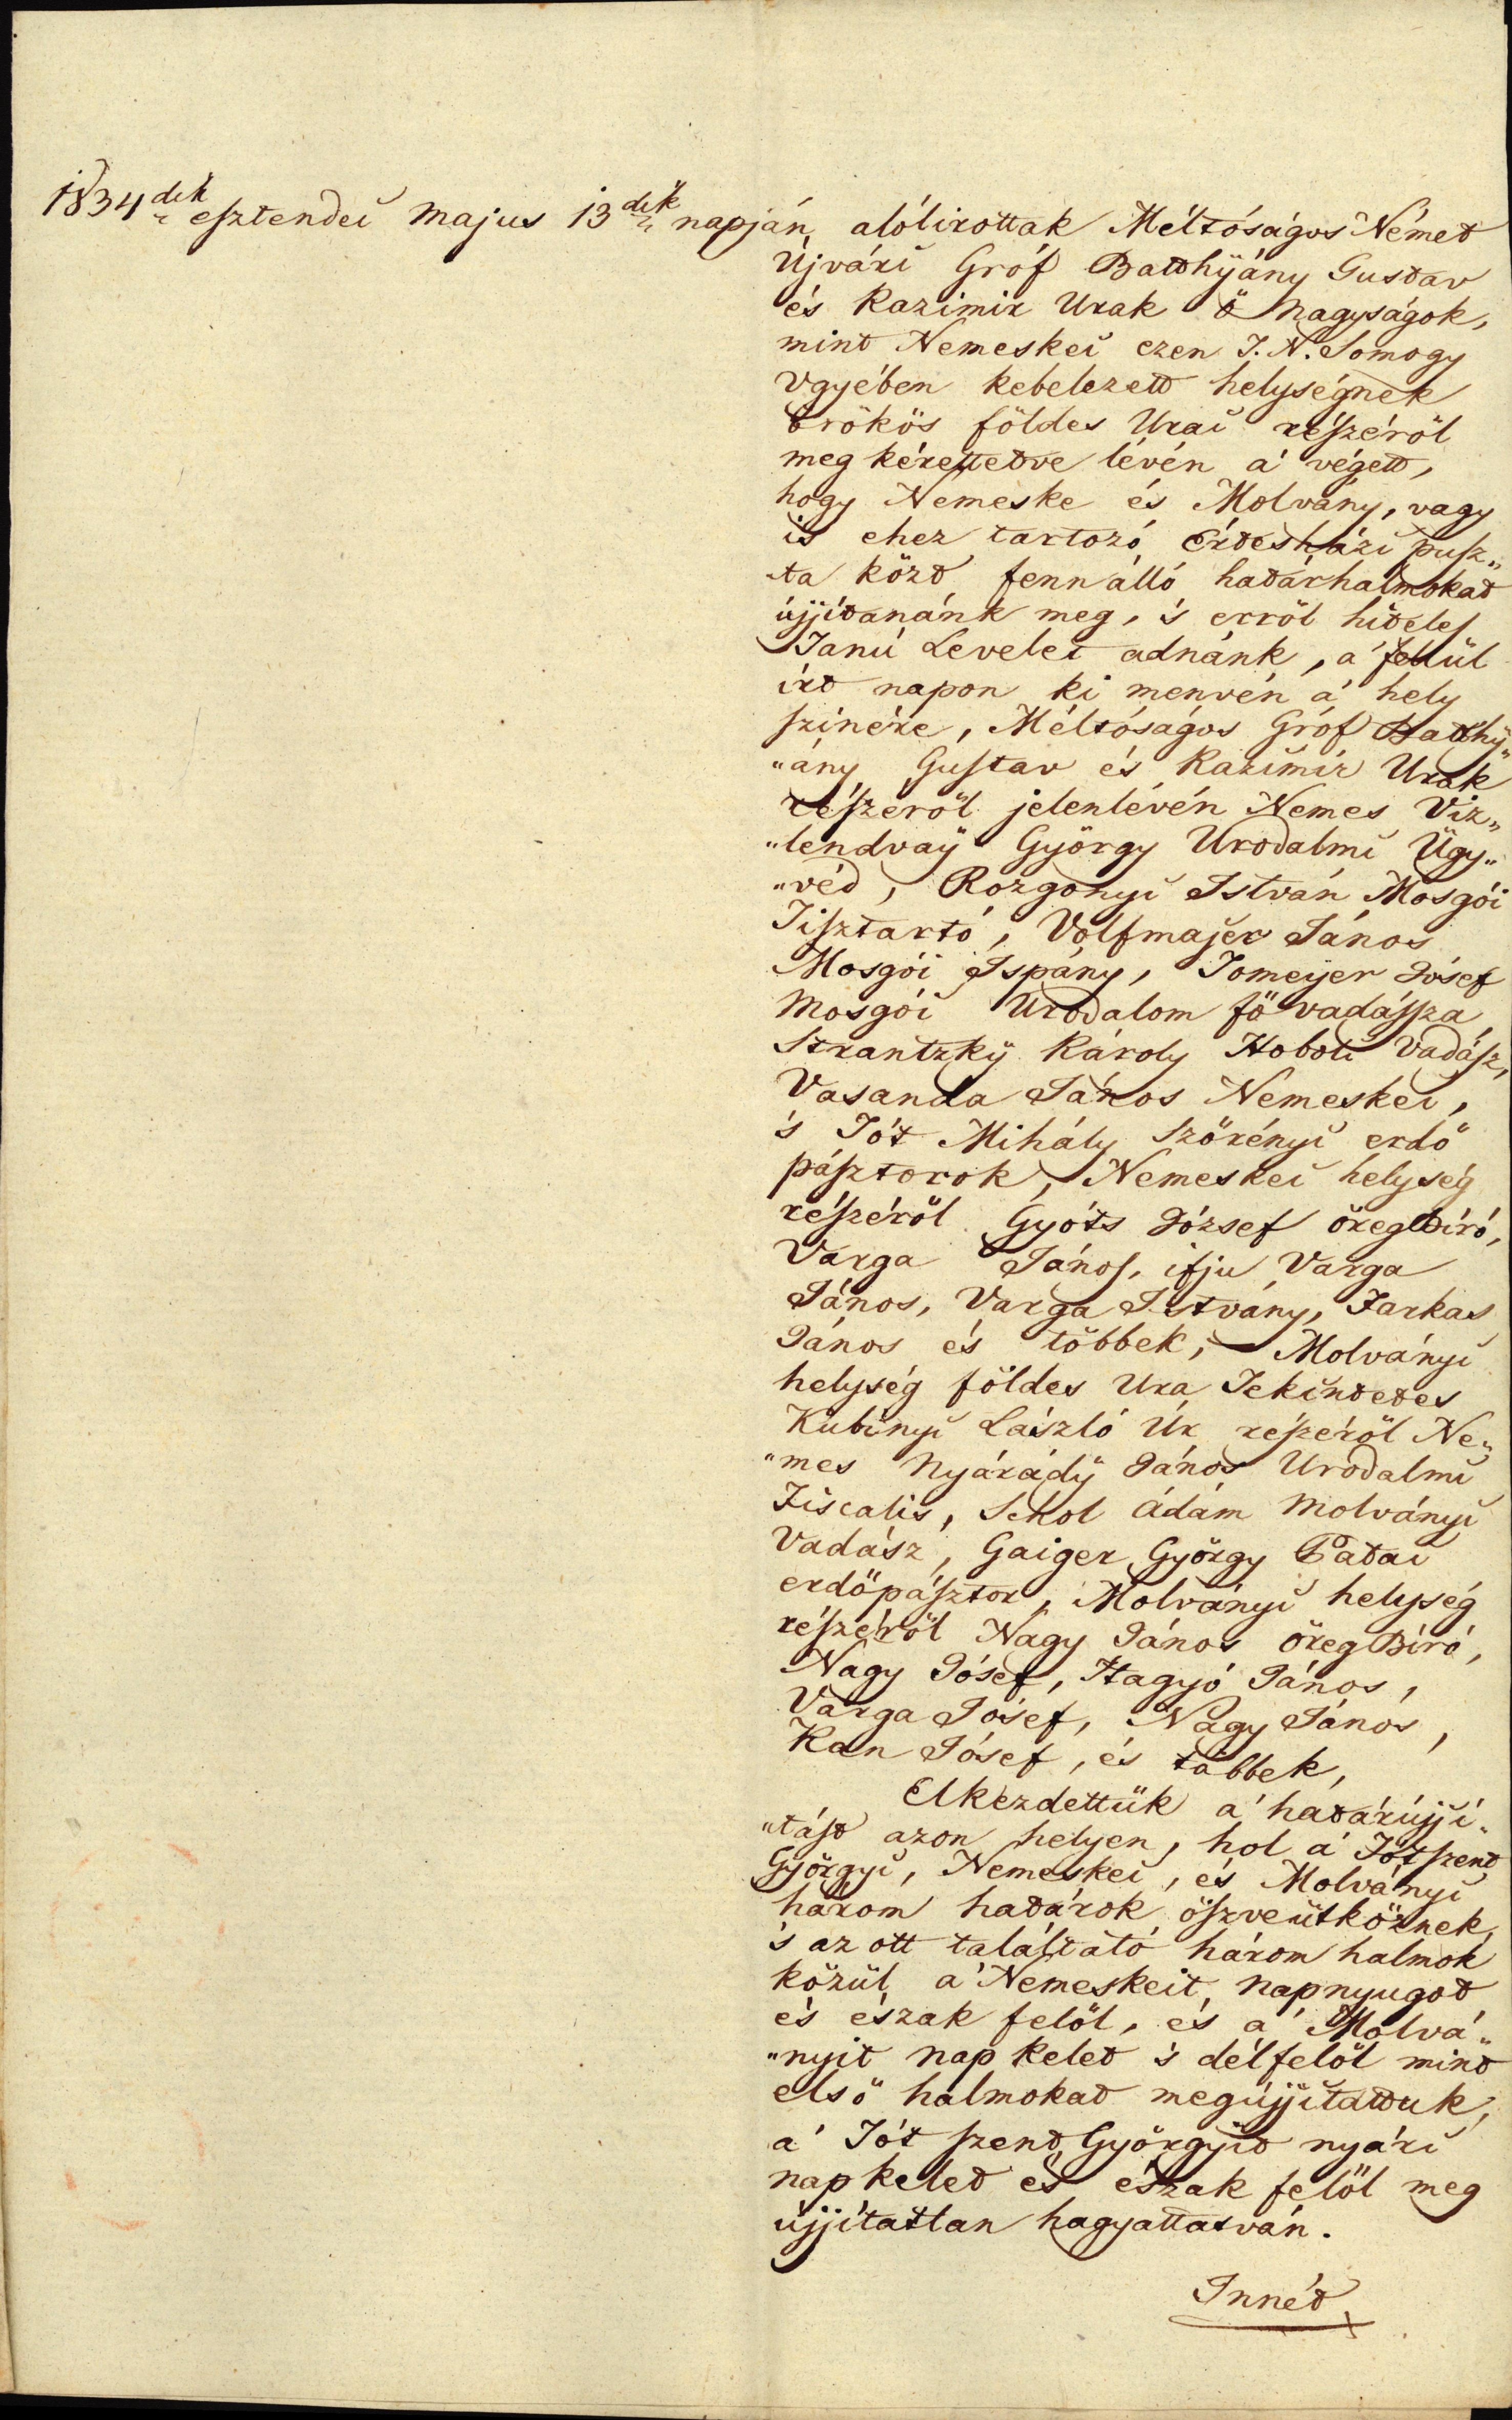 1834dik esztendei Majus 13dik napján alólirottak Méltóságos Német
Újvári Gróf Batthÿány Gustav
és Kazimir Urak ö Nagyságok,
mint Nemeskei ezen T. N. Somogy
Vgyében kebelezett helységnek
örökös földes Urai részéröl
meg kérettetve lévén a' végett,
hogy Nemeske és Molvány, vagy
is ehez tartozó Erdösházi pusz„
ta közt fenn álló határhalmokat
újjítanánk meg, 's erröl hiteles
Tanú Levelet adnánk, a' fellül
írt napon ki menvén a' hely
szinére, Méltóságos Gróf Batthÿ„
„ány Gustav és Kazimír Urak
részéröl jelenlévén Nemes Viz„
„lendvaÿ György Urodalmi Ügy„
„véd, Rozgonyi István Mosgói
Tisztartó, Volfmajer János
Mosgói Ispány, Tomeÿer Jósef
Mosgói Urodalom fö vadászsza
Strantzkÿ Károly Hoboli Vadász,
Vasanda János Nemeskei,
's Tót Mihály Szörényi erdö
pásztorok, Nemeskei helység
részéröl Gyóts József öregbíró,
Varga János, ifju Varga
János, Varga Istvány, Farkas
János és többek, Molványi
helység földes Ura Tekintetes
Kubinyi László Úr részéröl Ne„
„mes Nyárádÿ János Urodalmi
Fiscalis, Sekol Ádám Molványi
Vadász, Gaiger György Patai
erdöpásztor, Molványi helység
részéröl Nagy János öreg Bíró,
Nagy Jósef, Hagyó János,
Varga Jósef, Nagy János,
Kan Jósef, és többek,
Elkezdettük a' határújjí„
„tást azon helyen, hol a' Tótszent
Györgyi, Nemeskei, és Molványi
három határok öszveütköznek,
's az ott találtató három halmok
közül a' Nemeskeit, napnyugot
és észak felöl, és a' Molvá„
„nyit nap kelet 's dél felöl mint
elsö halmokat megújjítattuk,
a' Tót szent Györgyit nyári
nap kelet és észak felöl meg
újjítatlan hagyattatván.
Innét